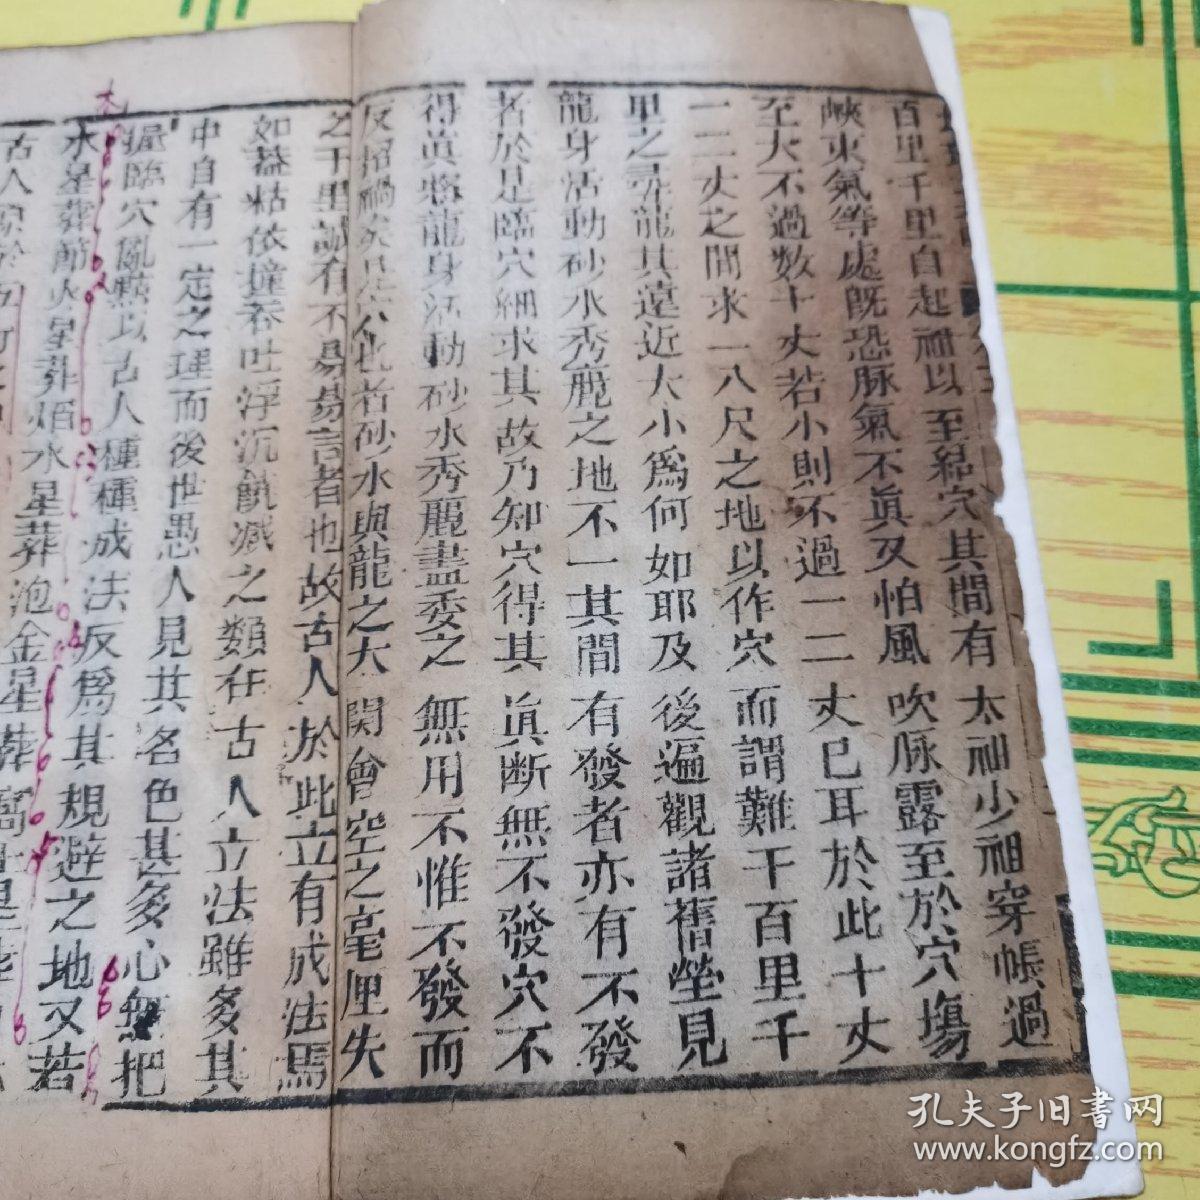 百里千里自起祖以至結穴其間有太祖少祖穿帳過
峽束氣等處旣恐脉氣不眞又怕風吹脉露至於穴塲
至大不過數十丈若小則不過一二丈已耳於此十丈
一二丈之間求一八尺之地以作穴而謂難于百里千
里之尋龍其遠近大小爲何如耶及後遍觀諸舊塋見
龍身活動砂水秀麗之地不一其間有發者亦有不發
者於是臨穴細求其故乃知穴得其眞断無不發穴不
得眞將龍身活動砂水秀麗盡委之無用不惟不發而
反招禍矣是穴也者砂水與龍之大関會空之毫厘失
之千里誠有不易易言者也故古人於此立有成法焉
如葢粘依撞吞吐浮沉饒减之類在古人立法雖多其
中自有一定之理而後世愚人見其名色甚多心無把
握臨穴亂㸃以古人種種成法反爲其規避之地又若
水星葬節火星葬焰水星葬泡金星葬窩土星葬
古人
孔夫子旧书网
www.kongfz.com